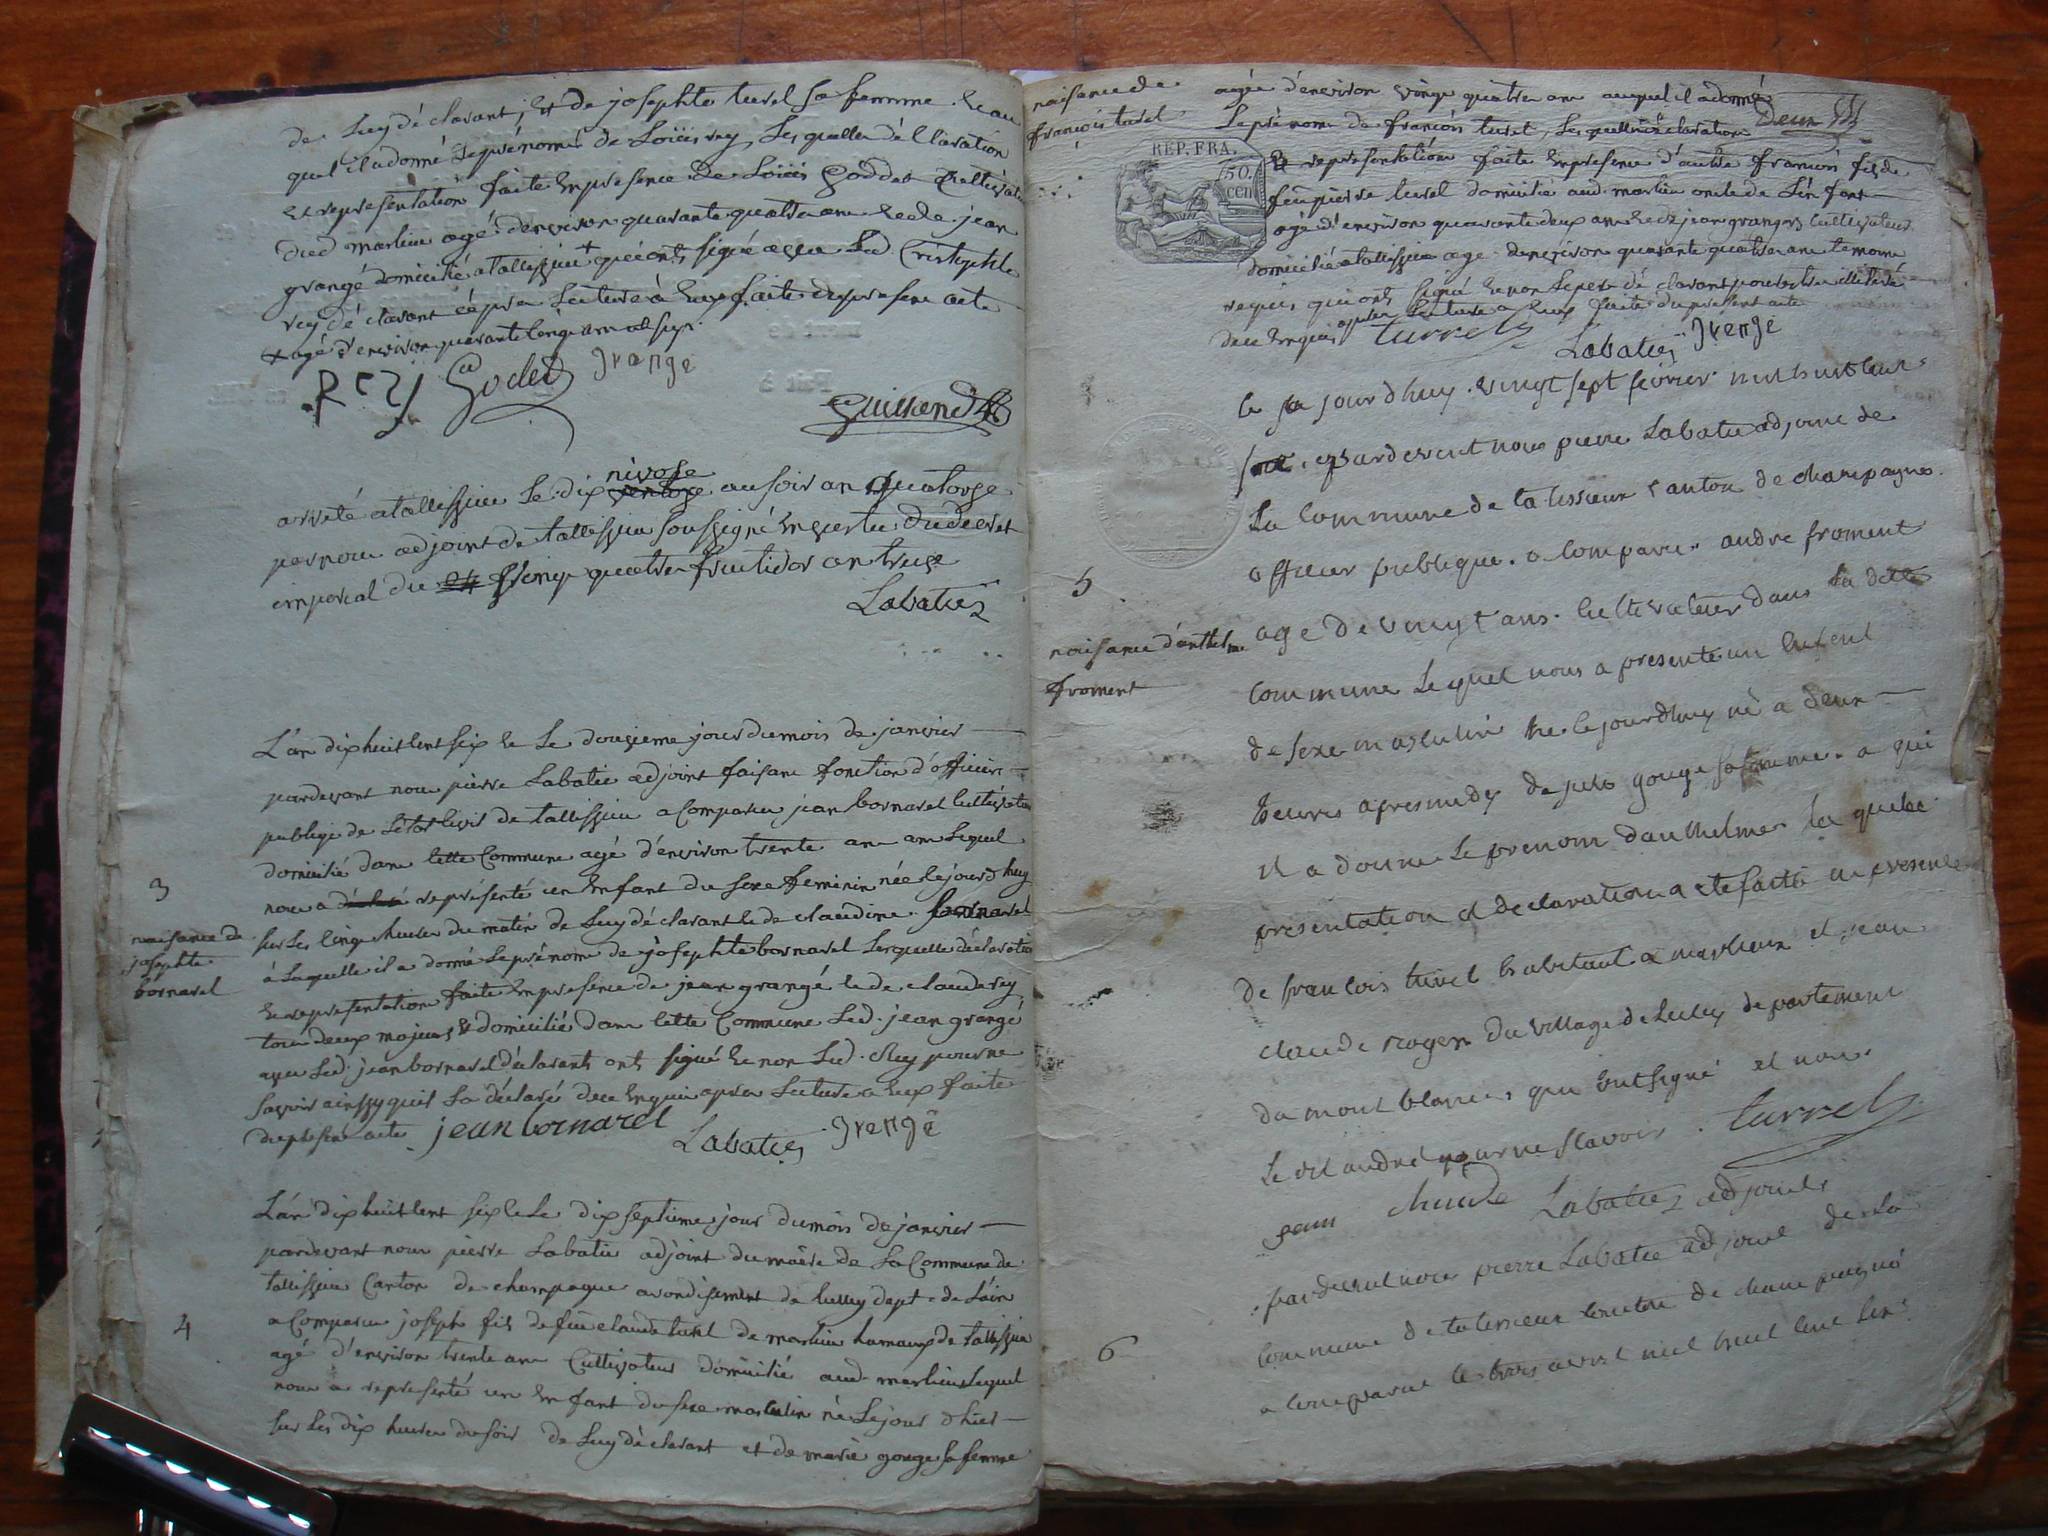 de luy déclarant, et de josephte turel sa femme. et au
quel il a donné le prénomé de Loüis rey, Les quelles déclaration
et représentation faite en presence de Loüis Goddet Cultivate
dud marlieu agé d'environ quarante quatre ans et de jean
grangé domicilié a tallissieu + qui ont signé avec Led. Cristophle
rey déclarant après Lecture à Eux faite du present acte
+ agé d'environ quarante cinq ans
Rey Godet grange
Guillend
arreté a tallissieu Le dix nivose ventose au soir an quatorze
par nou adjoint de tallissieu soussigné en vertu du décret
imperial du 24 vingt quatre fructidor an treize
Labatie
L'an dix huit cent six et Le douzieme jour du mois de janvier
pardevant nou pierre Labatie adjoint faisant fonction d'officier
publique de L'état civil de tallissieu a Comparu jean bornarel cultivateur
domicilié dans cette Commune agé d'environ trente ans Lequel
nou a déclaré représenté un Enfant du sexe feminin née le jourd'huy
sur Les cinq heures du matin de Luy déclarant et de claudine bornarel
à Laquelle il a donné Le prénom de josephte bornarel Les quelle déclaration
et representation faite En presence de jean grangé et de claude rey
tous deux majeurs et domicilié dans cette Commune Led. jean grangé
avec Led. jean bornarel déclarant ont signé et non Led. Rey pour ne
savoir ainsy quil La déclaré de ce Enquis apres Lecture a Eux faite
du présent acte jean bornarel Labatie grange
3
naisance de
josephte
bornarel
L'an dix huit cent six et Le dix septieme jour du mois de janvier
pardevant nou pierre Labatie adjoint du maire de La Commune de
tallissieu Canton de champagne arondisement de belley dept. de L'ain
a Comparu joseph fils de feu claude turel de marlieu hameau de tallissieu
agé d'environ trente ans Cultivateur domicilié aud. marlieu Lequel
nou a representé un Enfant du sexe masculin né Le jour d'hier
sur Les dix heures du soir de Luy déclarant et de marie gouge sa femme
4
naisance de
francois turel
agée d'environ vingt quatre ans auquel il a donné
Le prénom de francois turel, Les quelles déclaration
Deux
REP. FRA.
50.
cen
Et representation faite En presence d'autre francois fils de
feu pierre turel domicilié aud. marlieu oncle de L'enfant
agé d'environ quarante deux ans et de jean grangé cultivateur
domicilié a tallissieu agé d'environ quarante quatre ans temoins
requis qui ont signé et non Le pere déclarant pour être illitéré
de ce Enquis apres Lecture a Eux faite du present acte
turrel Labatie grange
le jourdhuy vingt sept fevrier mil huit cent
six, pardevent nous pierre Labatie adjoint de
La Commune de talissieux canton de champagne
officier publique. a comparu andre froment
age de vingt ans. Cultivateur dans La dite
Commune Lequel nous a presente un enfent
de sexe masculin ne le jourdhuy né a deux
heures apres midy de gouge sa femme. a qui
il a donne Le prenom danthelme la quelle
présentation et declaration a ete faitte en presence
de francois turel habitant a marlieux et jean
claude roger du village de Lucey departement
du mont blanc, qui ont signé et non
Le dit andré pour ne scavoir. turrel
jean claude Labatie adjoint
5
naisance d'anthelme
froment
pardevent nous pierre Labatie adjoint de La
commune de talissieux canton de champagne
a comparut le trois avril mil huit cent six
6